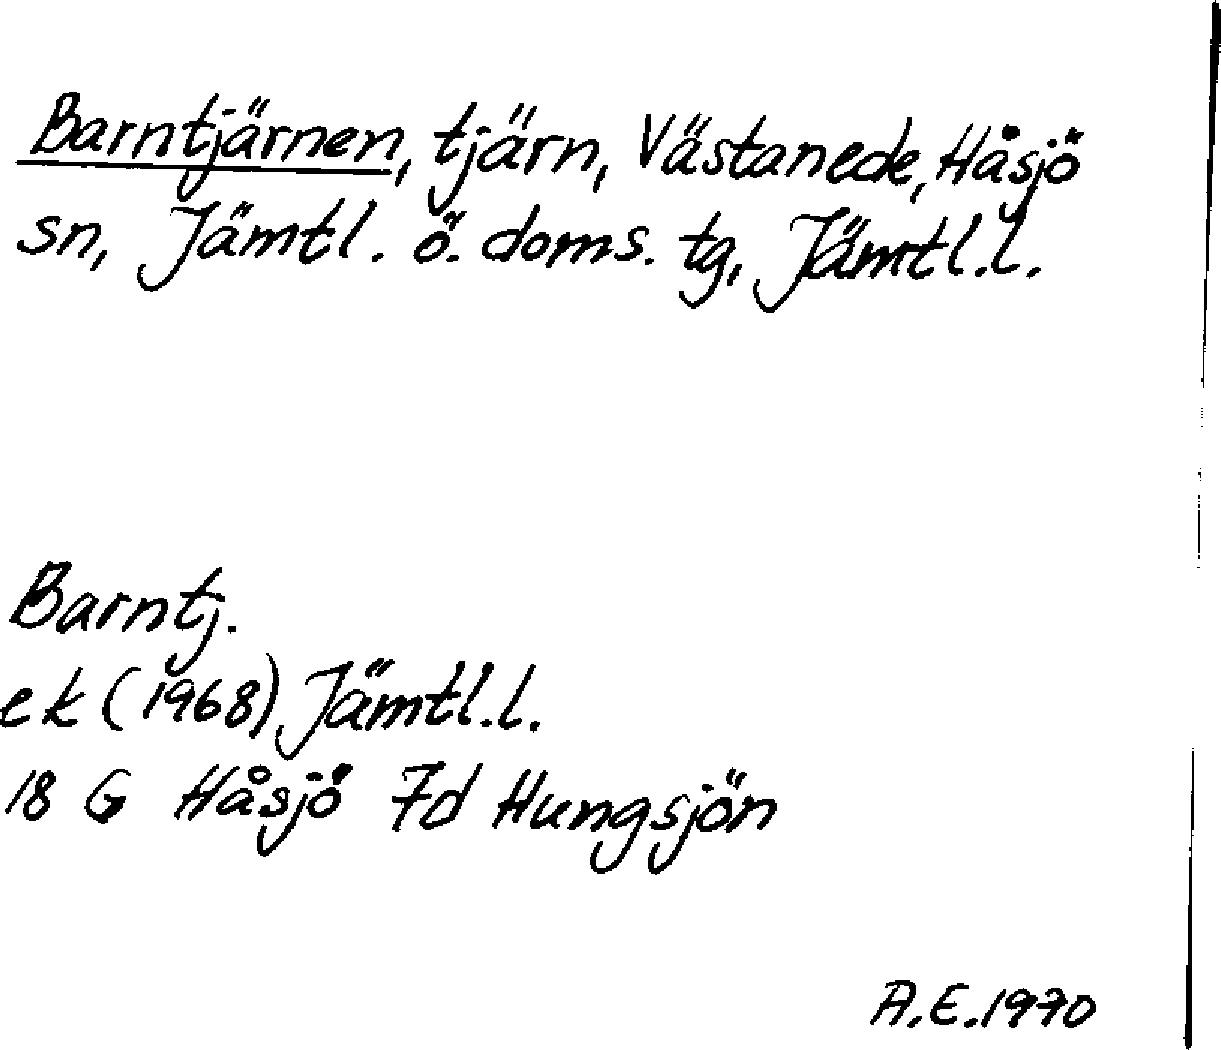 Barntjärnen, tjärn, Västanede, Håsjö
sn, Jämtl. ö. doms. tg, Jämtl.l.
Barntj.
ek (1968) Jämtl.l.
18 G Håsjö 7d Hungsjön
A.E.1970